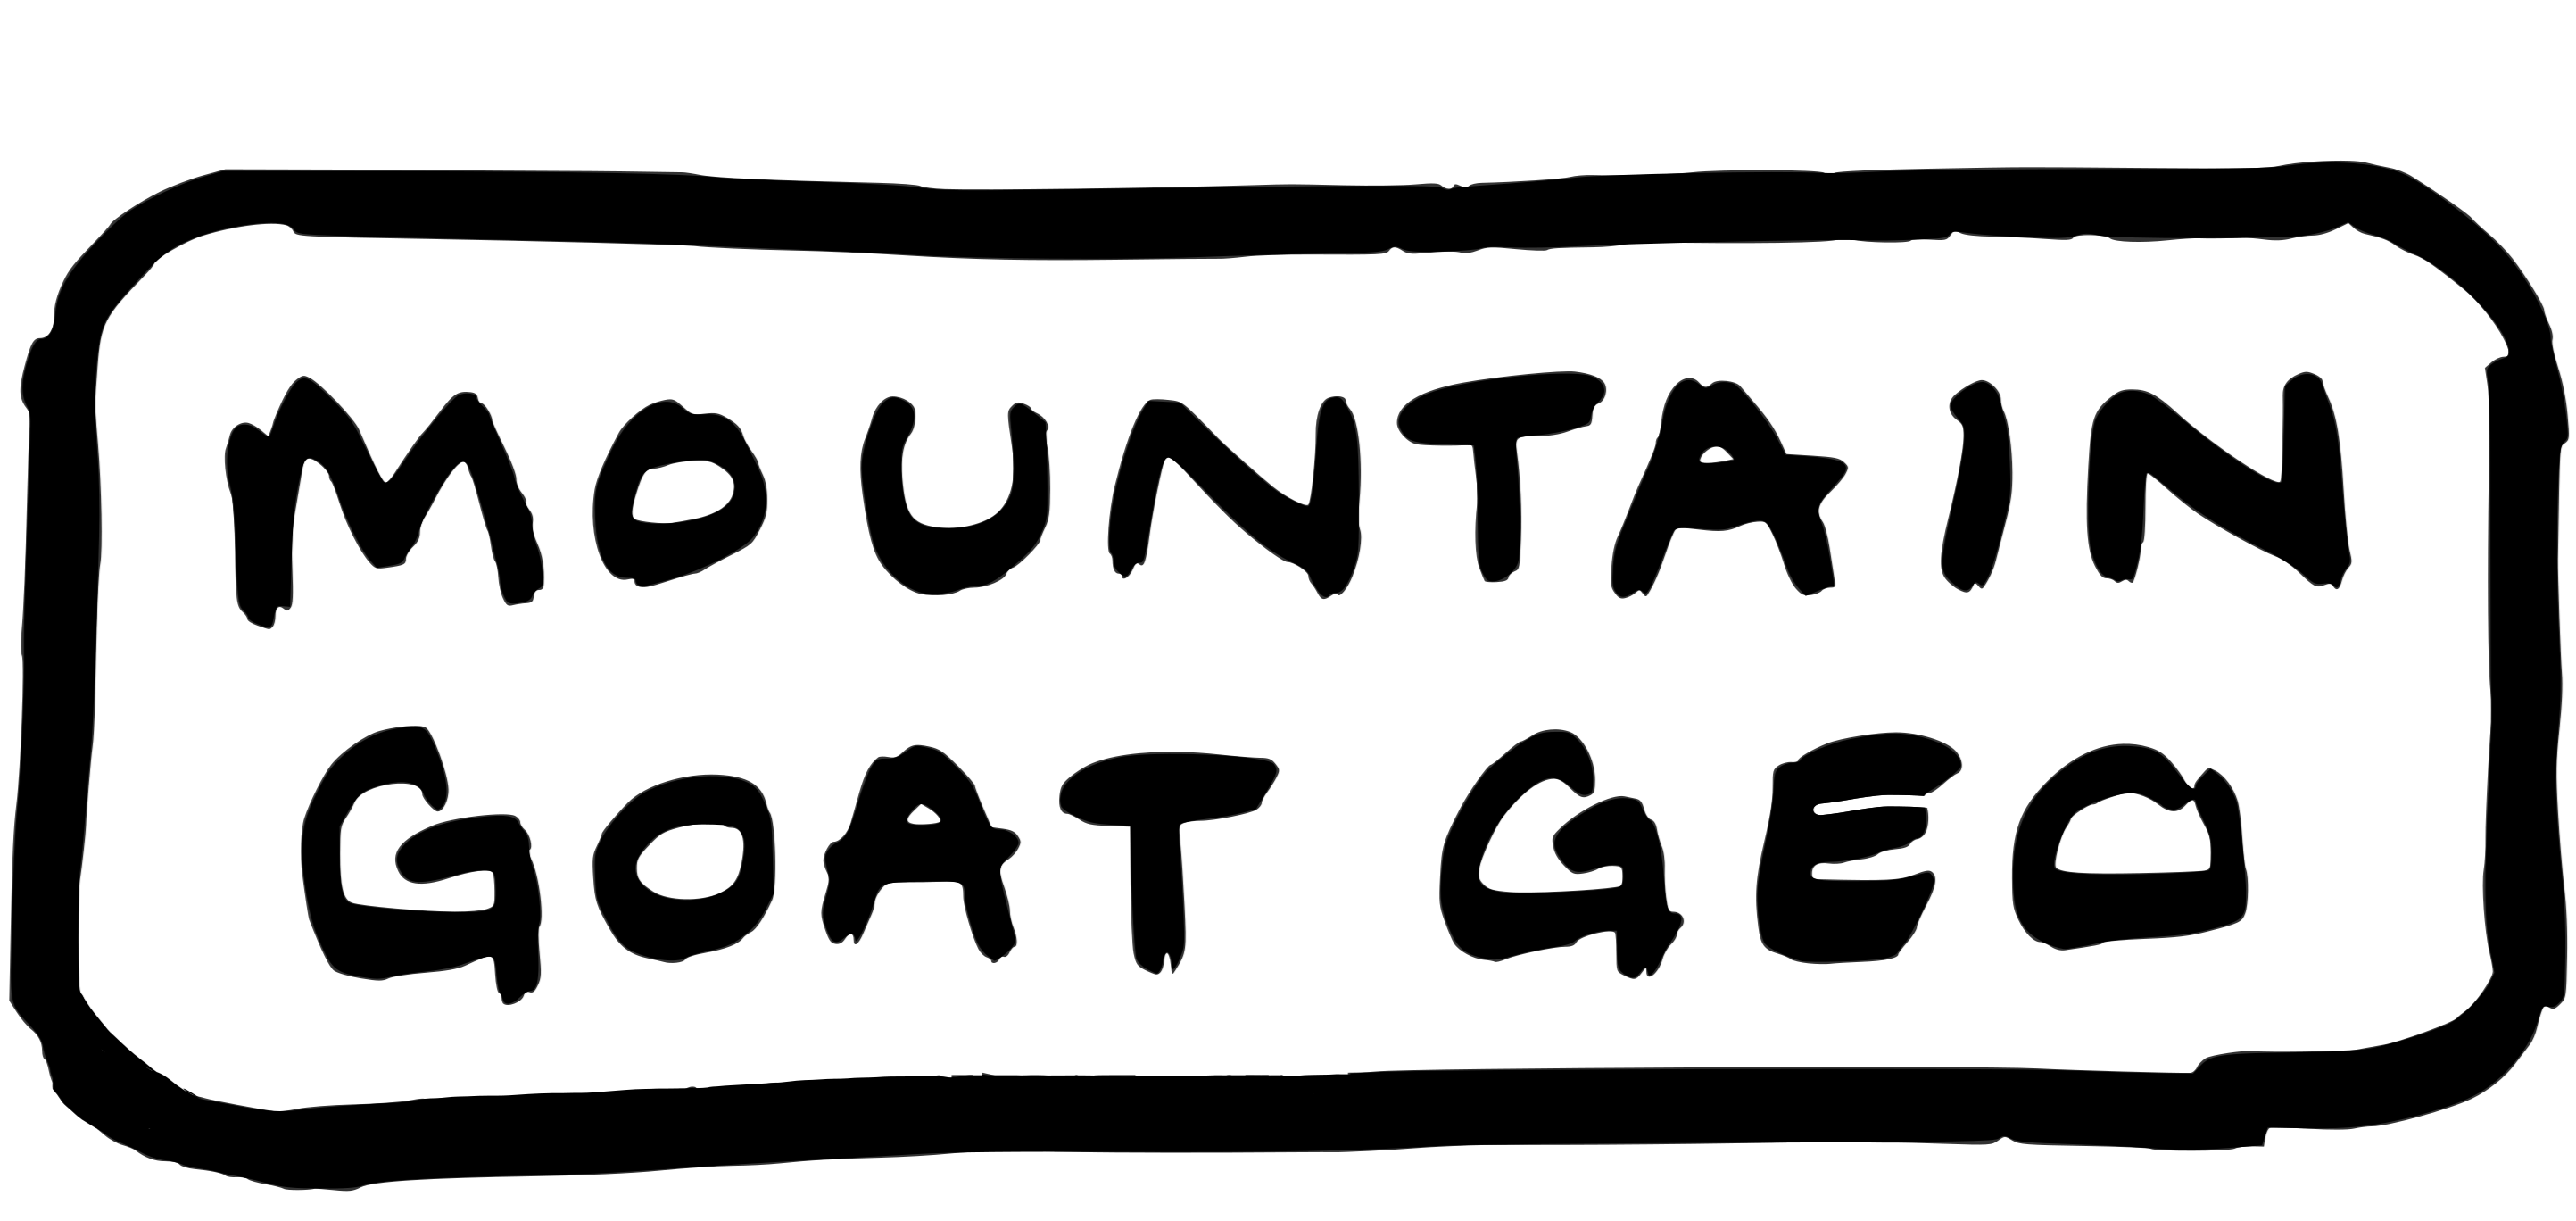 MOUNTAIN
GOAT GEO